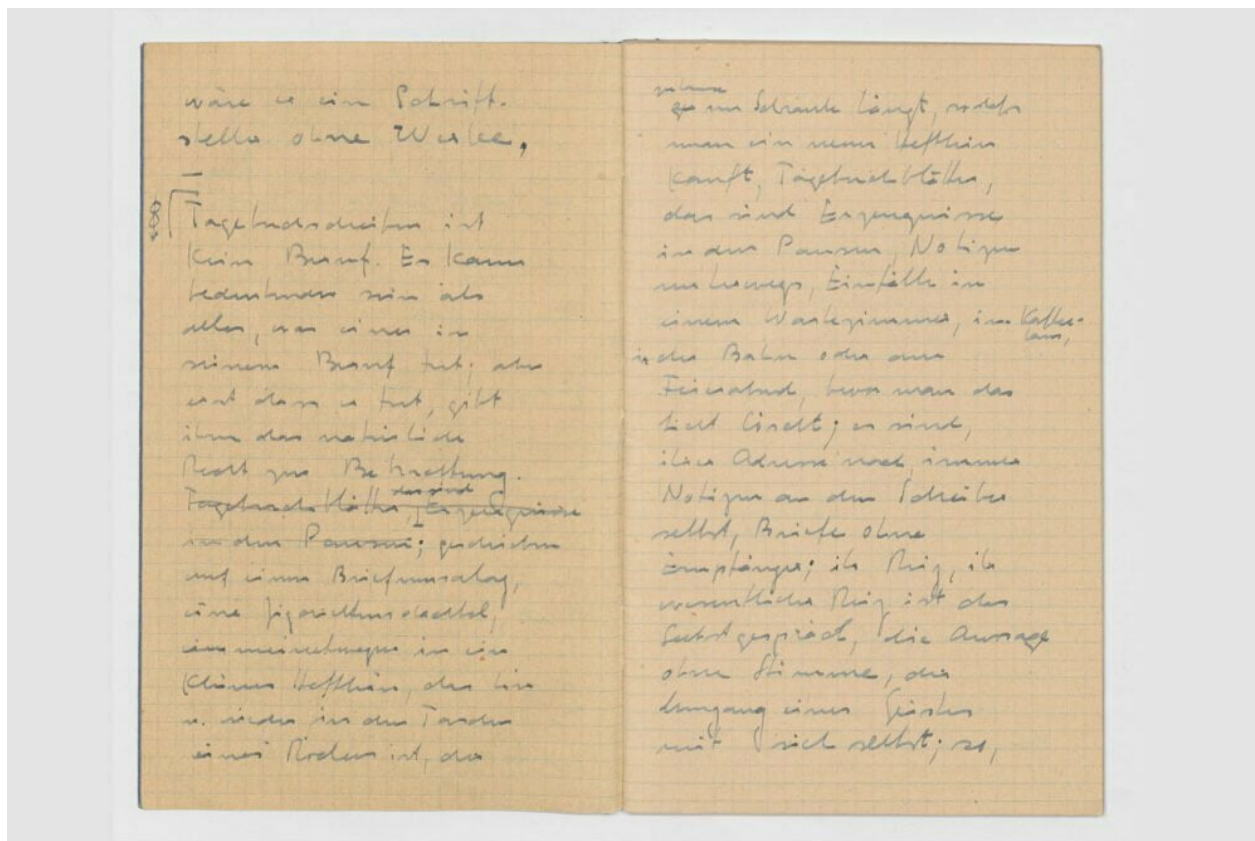 wäre es ein Schrift-
steller ohne Werke,
Tagebuchschreiben ist
kein Beruf. Es kann
bedeutender sein als
alles, was einer in
seinem Beruf tut; aber
erst dass er tut, gibt
ihm das natürliche
Recht zur Betrachtung.
Tagebuchblätter, das sind Erzeugnisse
in den Pausen; geschrieben
auf einen Briefumschlag,
eine Zigarettenschachtel,
meinetwegen in ein
kleines Heftlein, das hin
u. wieder in der Taschen
eines Rockes ist, der
im Schranke hängt, sodass
man ein neues Heftlein
kauft, Tagebuchblätter,
das sind Erzeugnisse
in den Pausen, Notizen
unterwegs, Einfälle in
einem Wartezimmer, im Kaffee-
haus,
in der Bahn oder am
Feierabend, bevor man das
Licht löscht; es sind,
ihrer Adresse nach, immer
Notizen an den Schreiber
selbst, Briefe ohne
Empfänger; ihr Reiz, ihr
wesentlicher Reiz ist das
Selbstgespräch, die Aussage
ohne Stimme, der
Umgang eines Geistes
mit sich selbst; so,